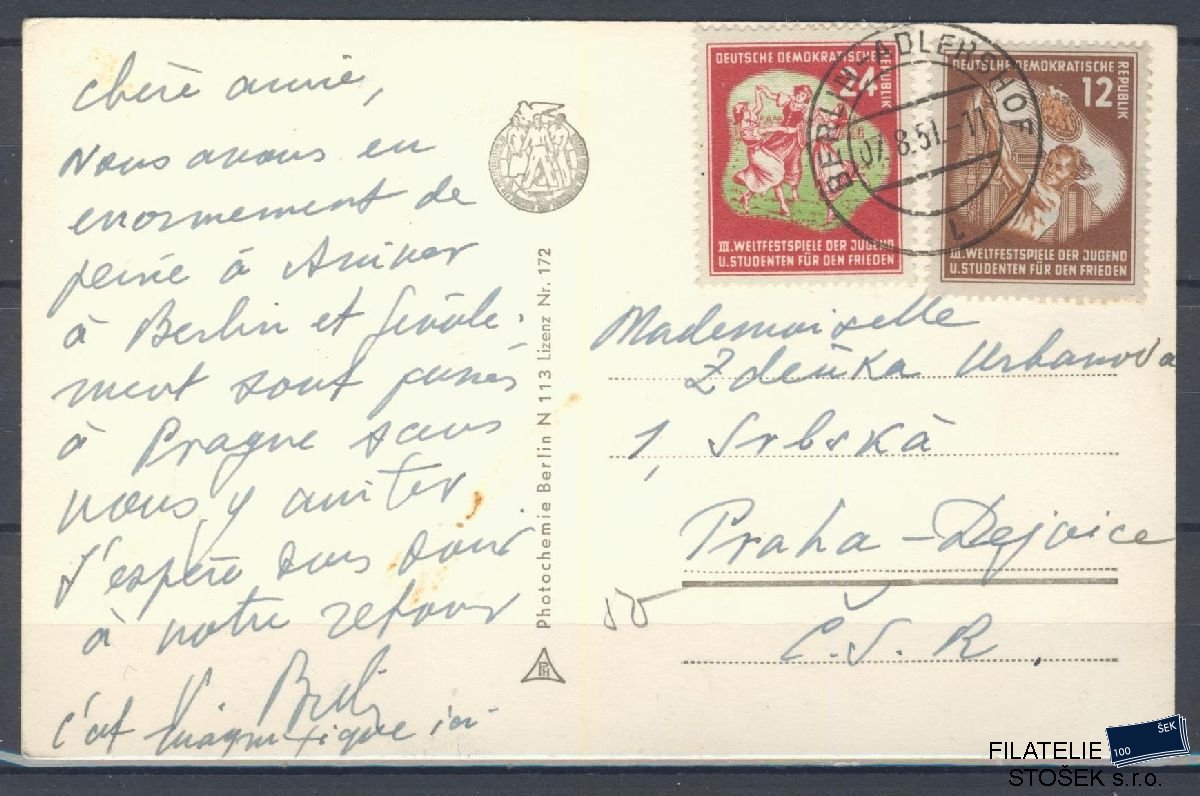 chère amie,
Nous avons eu
enormement de
peine à arriver
à Berlin et
ment sont passés
à Prague sans
nous y arrêter,
J'espère vous
à notre retour
c'est magnifique ici
Photochemie Berlin N 113 Lizenz Nr. 172
DEUTSCHE DEMOKRATISCHE
REPUBLIK
24
III. WELTFESTSPIELE DER JUGEND
U. STUDENTEN FÜR DEN FRIEDEN
DEUTSCHE DEMOKRATISCHE
REPUBLIK
12
III. WELTFESTSPIELE DER JUGEND
U. STUDENTEN FÜR DEN FRIEDEN
BERLIN-ADLERSHOF
07.8.51.-11
L
Mademoiselle
Zdeňka Urbanova
1, Srbská
Praha - Dejvice
Č.S.R.
FILATELIE
STOŠEK s.r.o.
100
ŠEK